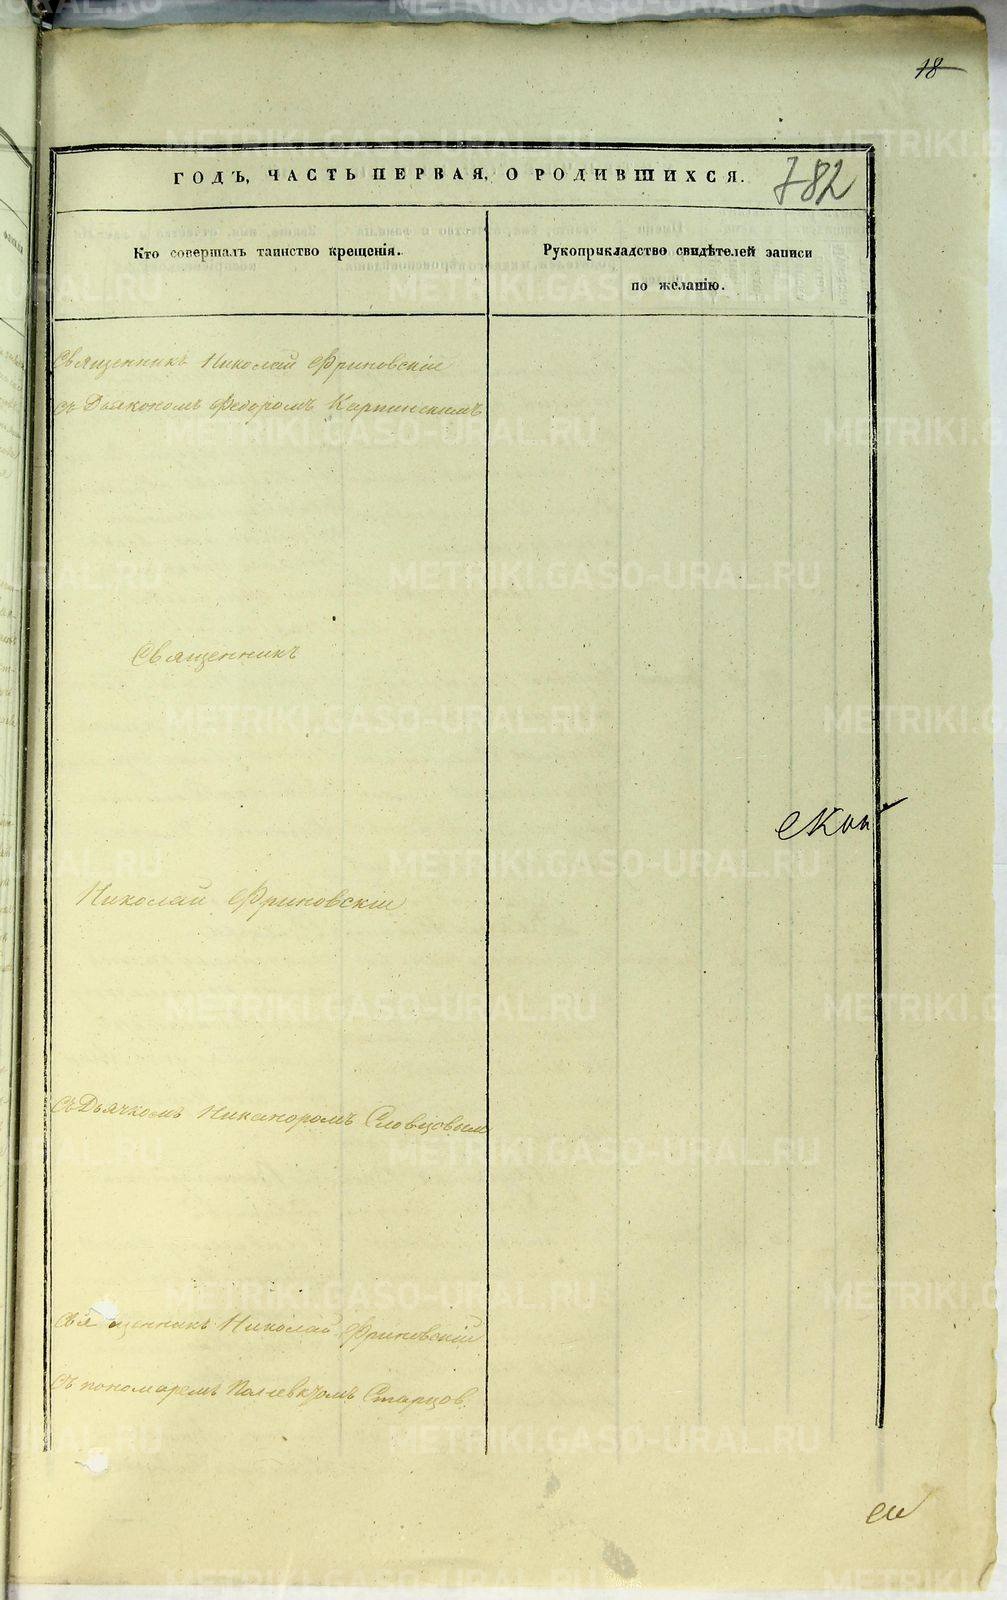 18
ГОДЪ, ЧАСТЬ ПЕРВАЯ, О РОДИВШИХСЯ.
782
Кто совершалъ таинство крещенія.
Рукоприкладство свидѣтелей записи
по желанію.
Священникъ Николай Фриновскій
съ Дьякономъ Федоромъ Карпинскимъ
Священникъ
Николай Фриновскій
съ Дьячкомъ Никаноромъ Словцовым
Священникъ Николай Фриновскій
съ пономаремъ Старцов.
METRIKI.GASO-URAL.RU